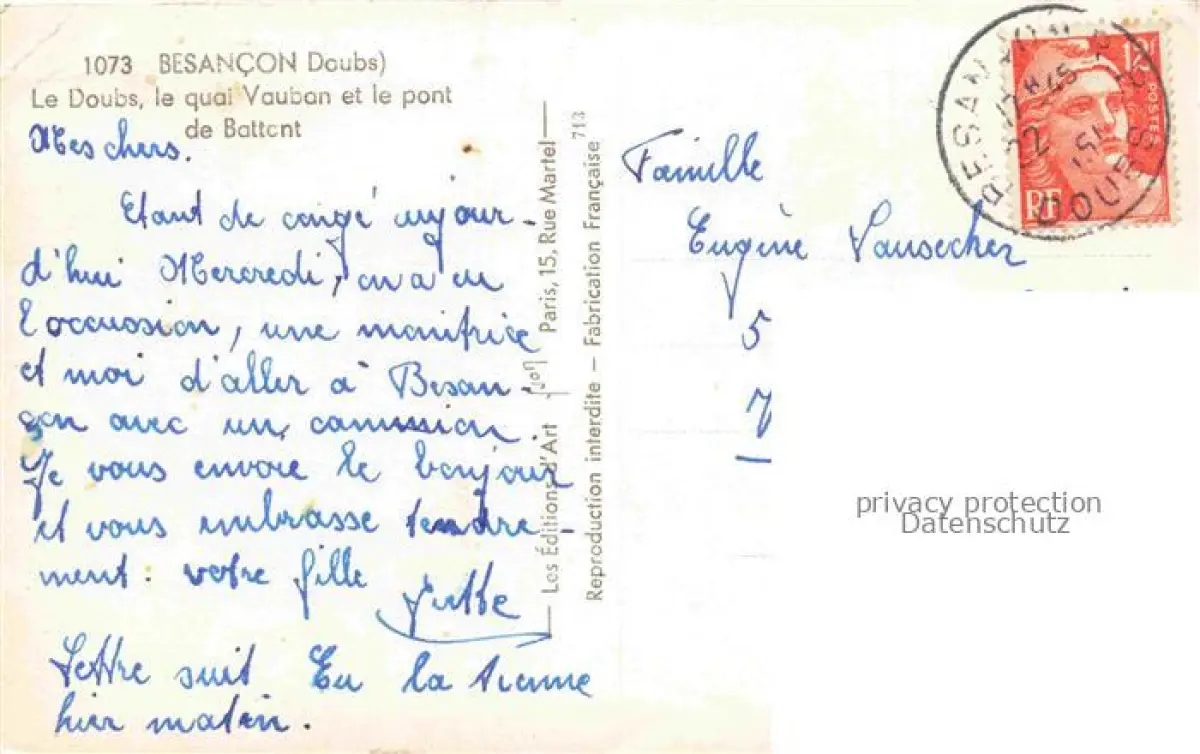 1073 BESANÇON Doubs)
Le Doubs, le quai Vauban et le pont
de Battant
Mes chers.
Etant de congé aujour-
d'hui Mercredi, on a eu
l'occasion, une monitrice
et moi d'aller à Besan-
çon avec un camion.
Je vous envoie le bonjour
et vous embrasse tendre-
ment. votre fille
Lettre suit. Eu la tienne
hier matin.
Les Éditions d'Art Paris, 15, Rue Martel
Reproduction interdite — Fabrication Française 713
Famille
Eugène
5
7
BESANÇON
DOUBS
12F
POSTES
RF
privacy protection
Datenschutz